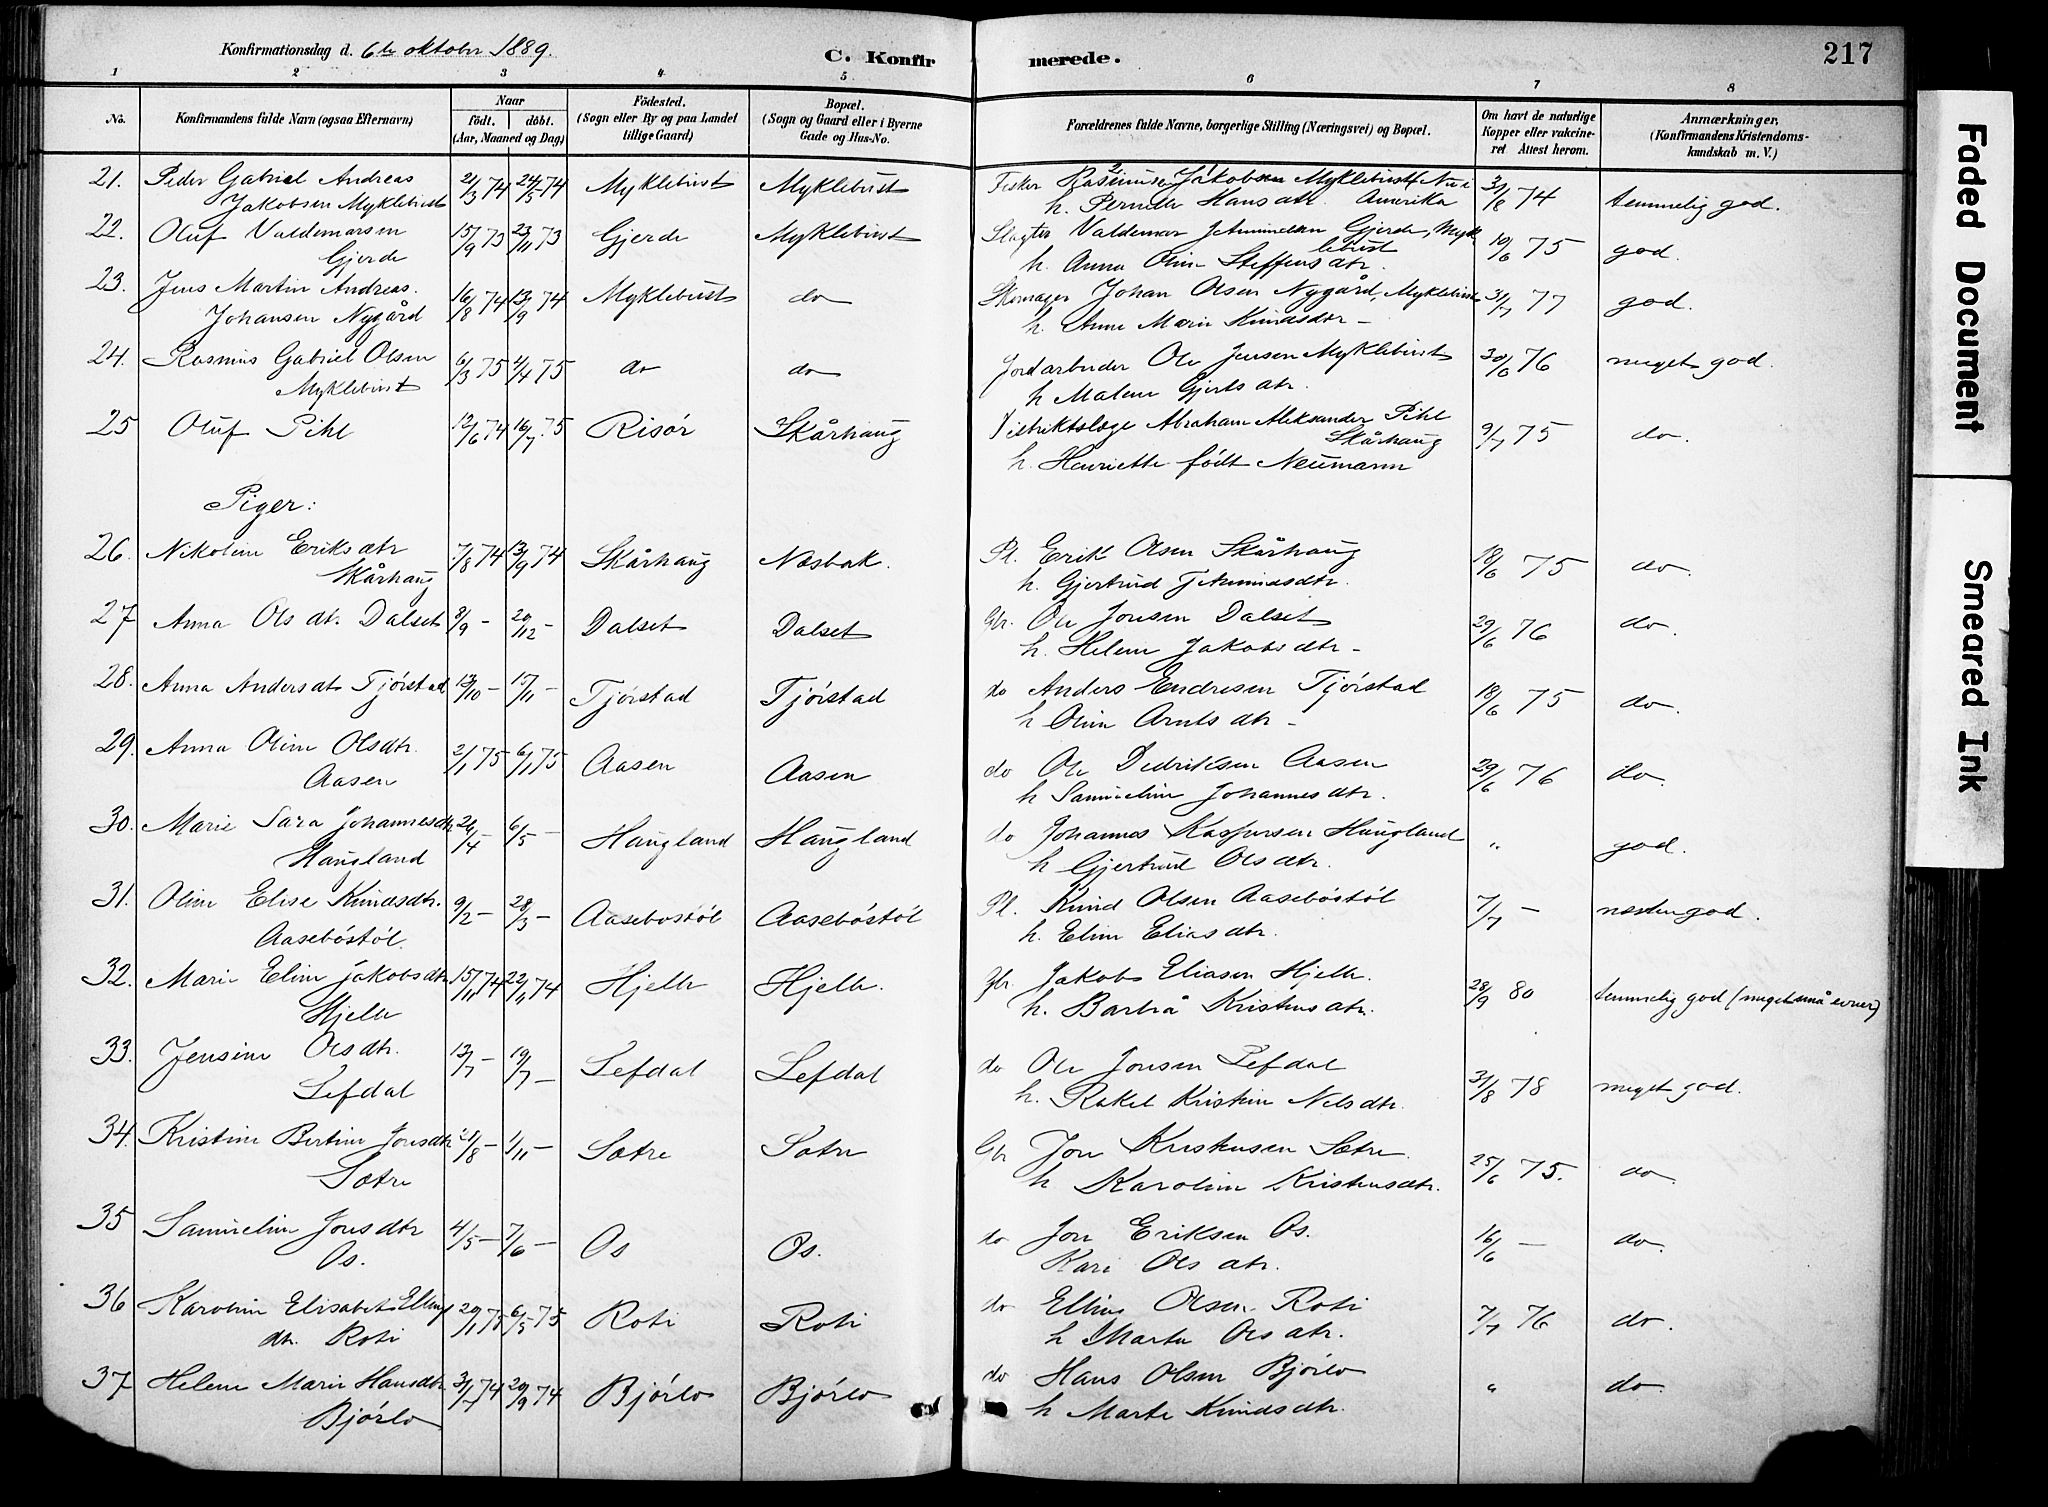 Konfirmationsdag d. 6te oktober 1889.
C. Konfirmerede.
217
1 2 3 4 5 6 7 8
No.
Konfirmandens fulde Navn (ogsaa Efternavn)
Naar
födt. döbt.
(Aar, Maaned og Dag)
Födested.
(Sogn eller By og paa Landet
tillige Gaard)
Bopæl.
(Sogn og Gaard eller i Byerne
Gade og Hus-No.
Forældrenes fulde Navne, borgerlige Stilling (Næringsvei) og Bopæl.
Om havt de naturlige
Kopper eller vakcineret
Attest herom.
Anmærkninger,
(Konfirmandens Kristendoms-
kundskab m. V.)
21. Peder Gabriel Andreas 21/3 74 24/5 74 Myklebust Myklebust Fisker Rasmus Jakobsen Myklebust Nu i 31/8 74 temmelig god.
Jakobsen Myklebust h. Hansdtr. Amerika
22. Oluf Valdemarsen 15/9 73 23/11 73 Gjerde Myklebust Slagter Valdemar Gjerde, Mykle 10/6 75 god.
Gjerde h. Anna Oline Steffensdtr. bust
23. Jens Martin Andreas. 16/8 74 13/9 74 Myklebust do Skomager Johan Olsen Nygård, Myklebust 31/7 77 god.
Johansen Nygård h. Anne Marie Knudsdtr –
24. Rasmus Gabriel Olsen 6/3 75 4/4 75 do do Jordarbeider Ole Jensen Myklebust 30/6 76 meget god.
Myklebust h Malene Gjertsdtr.
25 Oluf Pihl 12/6 74 16/7 75 Risör Skårhaug Distriktslæge Abraham Aleksander Pihl 9/7 75 do.
Skårhaug
h. Henriette født Neumann
Piger:
26. Nikoline Eriksdtr 7/8 74 13/9 74 Skårhaug Næsbak. Pl. Erik Olsen Skårhaug 18/6 75 do.
Skårhaug h. Gjertrud
27 Anna Olsdtr. Dalset 8/9 – 20/12 – Dalset Dalset Gbr. Ole Jonsen Dalset 29/6 76 do.
h. Helene Jakobsdtr –
28. Anna Andersdt Tjörstad 13/10 – 15/11 – Tjörstad Tjörstad do Anders Endresen Tjörstad 18/6 75 do.
h Oline Arntsdtr –
29. Anna Oline Olsdtr. 2/1 75 6/1 75 Aasen Aasen do Ole Didriksen Aasen 29/6 76 do.
Aasen h Samueline Johannesdtr.
30. Marie Sara Johannesdtr 24/4 – 6/5 – Haugland Haugland do Johannes Kaspersen Haugland " god.
Haugland h Gjertrud Olsdtr.
31. Oline Elise Knudsdtr. 9/2 – 28/3 – Aasebostöl Aaseböstöl Pl. Knud Olsen Aaseböstöl 7/7 – næsten god.
Aaseböstöl. h. Eline Eliasdtr.
32. Marie Eline Jakobsdtr 15/11 74 22/11 74 Hjelle Hjelle. Gbr. Jakob Eliasen Hjelle. 28/9 80 temmelig god (meget små evner)
Hjelle h. Barbrå Kristensdtr.
33. Jensine Olsdtr. 13/7 – 19/7 – Lefdal Lefdal do Ole Jonsen Lefdal 31/8 78 meget god.
Lefdal h. Rakel Kristine Nilsdtr.
34. Kristine Bertine Jonsdtr 21/8 – 1/11 – Sætre Sætre Gbr Jon Kristensen Sætre. 25/6 75. do.
Sætre h Karoline Kristensdtr.
35 Samueline Jonsdtr 4/5 – 7/6 – Os Os. do Jon Eriksen Os. 16/6 – do.
Os. Kari Olsdtr.
36 Karoline Elisabet Ellings 20/1 75 6/5 75 Roti Roti do Elling Olsen Roti 7/7 76 do.
dtr. Roti h Marte Olsdtr.
37 Helene Marie Hansdtr. 31/7 74 20/9 74 Bjórlo Bjórlo do Hans Olsen Bjórlo " do.
Bjórlo h Marte Knudsdtr.
Faded Document
Smeared Ink